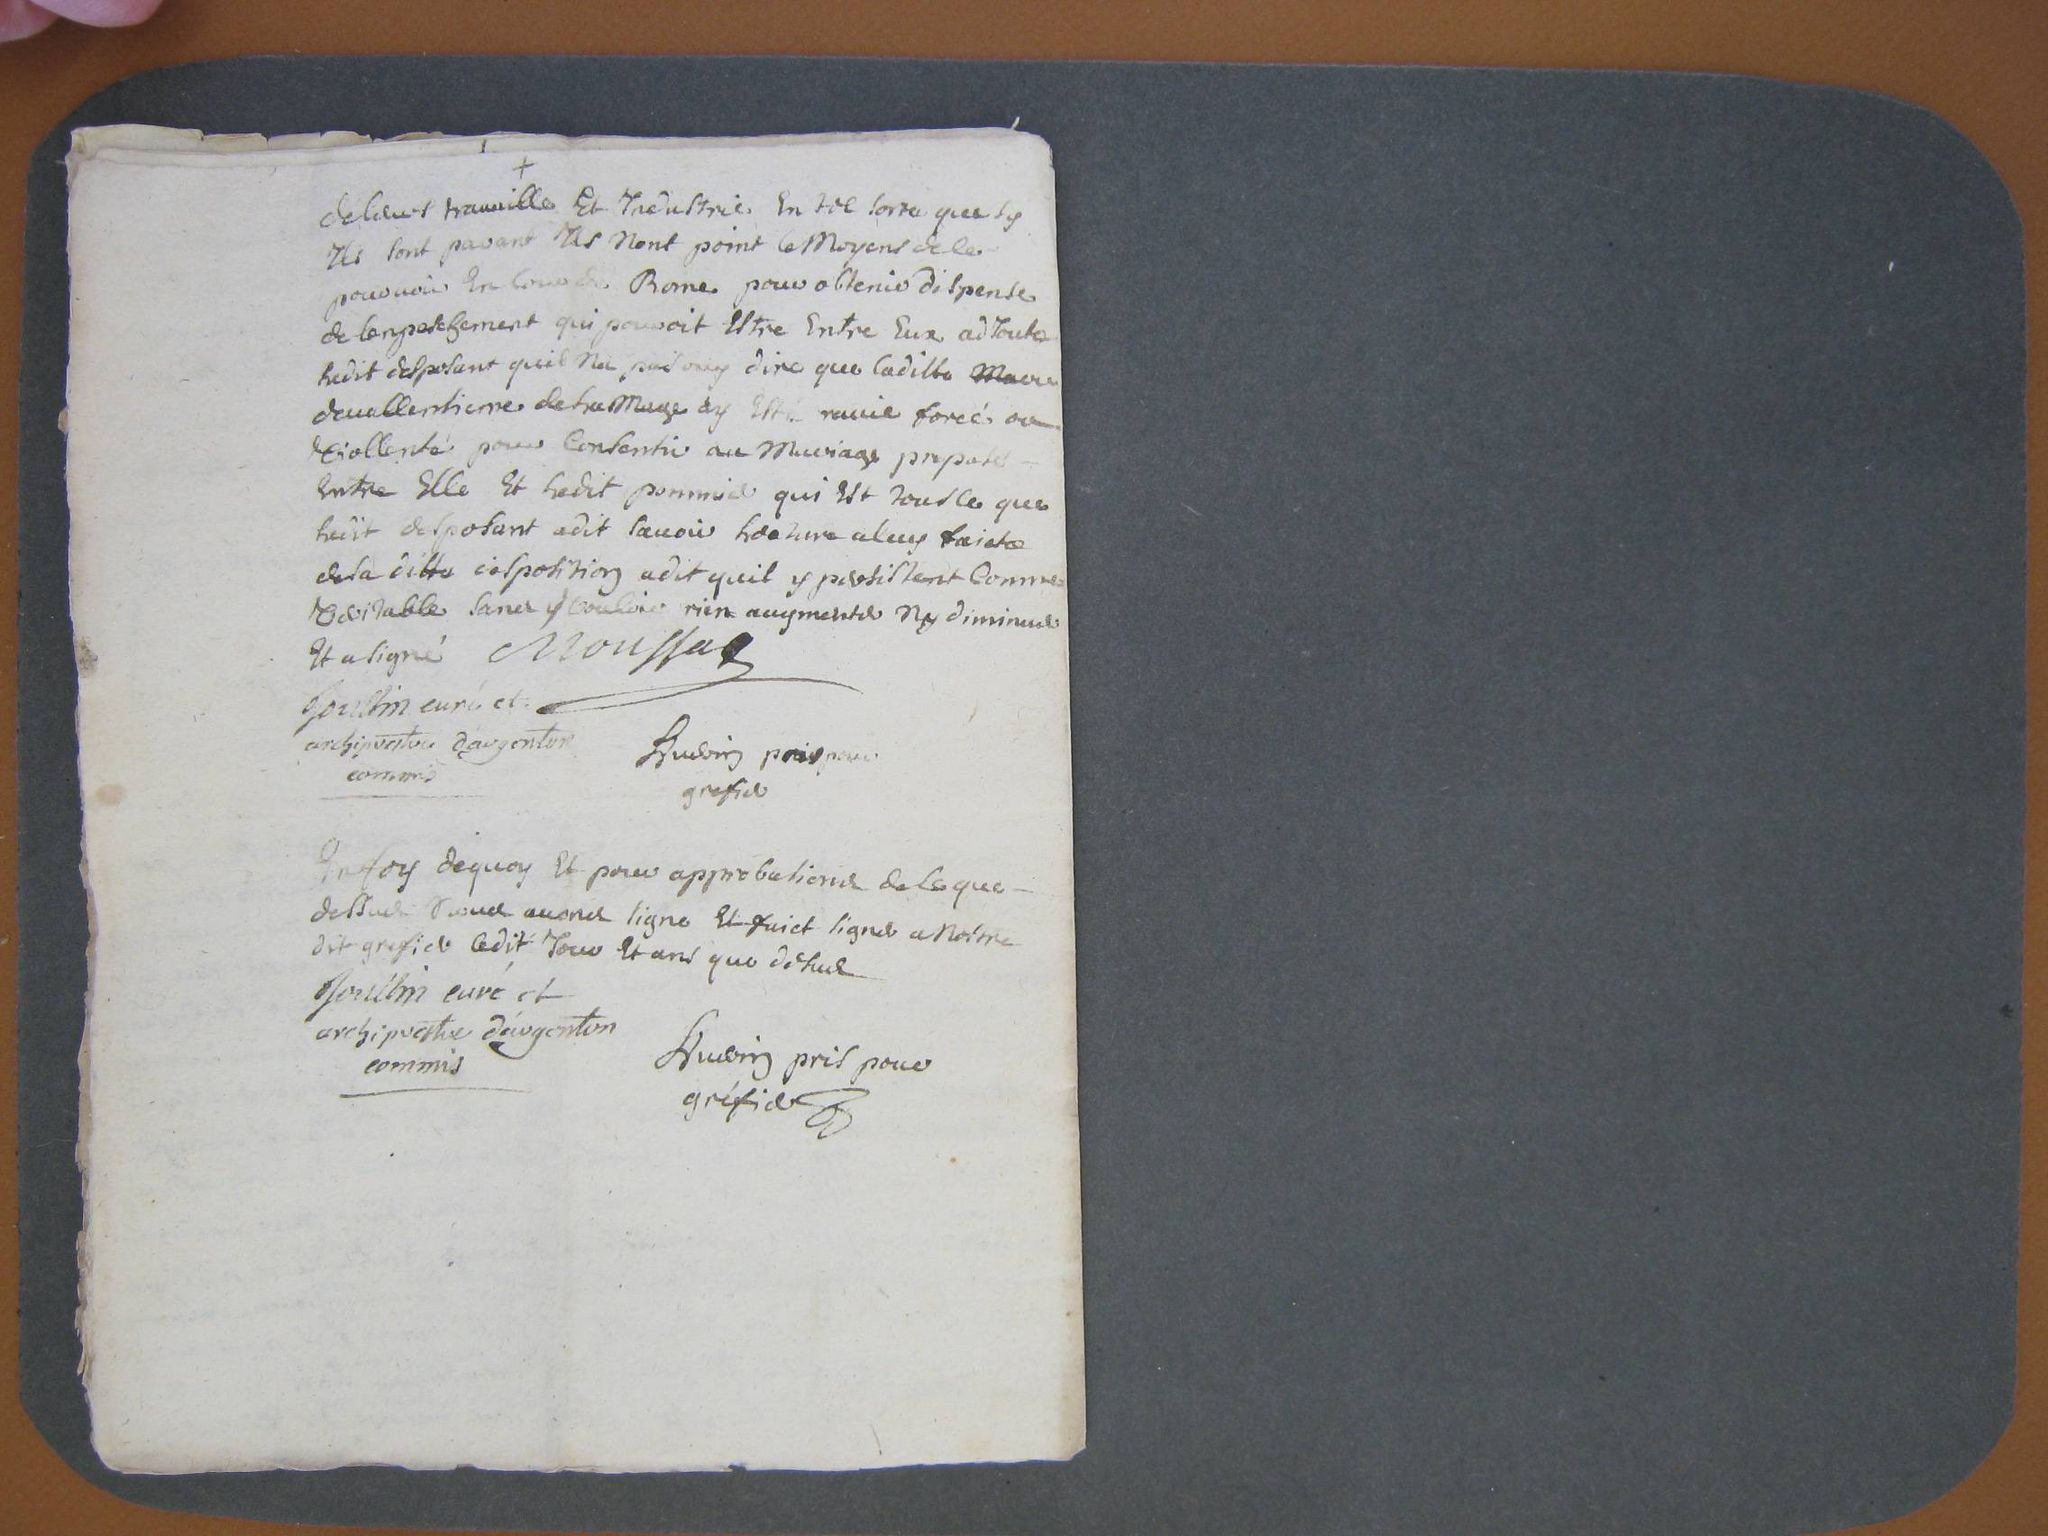 +
de leurs travaille Et Industrie En tel sorte que sy
Ils sont pavant Ils Nont point le Moyens de se
pourvoir En Cour de Rome pour obtenir dispense
de lenpeschement qui pouroit Estre Entre Eux adJoute
Ledit desposant quil Na pas ouy dire que laditte Marie
devallentienne ay Esté ravie forcé ou
Viollenté pour Consentir au Mariage proposé
Entre Elle Et Ledit pommier qui Est tousle que
Ledit desposant adit savoir Lecture aluy faicte
desa ditte desposition adit quil y persistent Comme
Veritable sans y vouloir rien augmenter Ny diminuer
Et a signé Moussac
Joullin curé et
archiprestre d'argenton
commis
pris pour
grefier
En foy dequoy Et pour approbations de Ce que
dessus Nous avons signe Et faict signer a Nostre
dit grefier Ledit Jour Et ans que desus
Joullin curé et
archiprestre d'argenton
commis
pris pour
gréfier